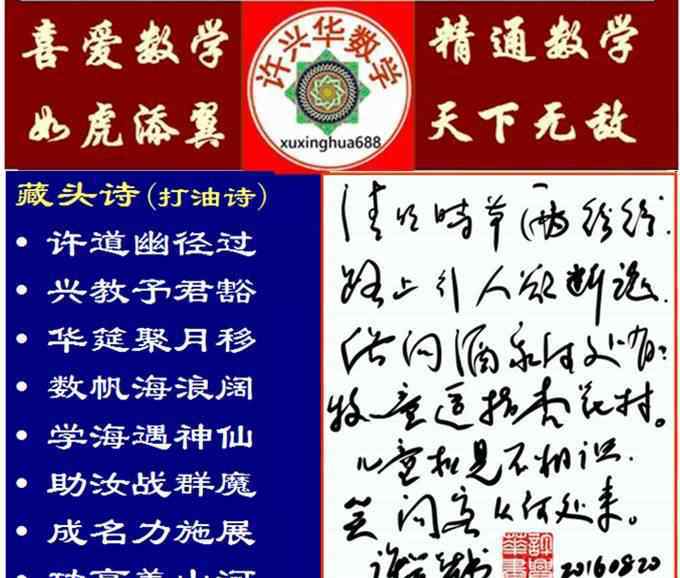 喜爱数学
如虎添翼
许兴华数学
xuxinghua688
精通数学
天下无敌
藏头诗(打油诗)
• 许道幽径过
• 兴教予君豁
• 华筵聚月移
• 数帆海浪阔
• 学海遇神仙
• 助汝战群魔
• 成名力施展
清明时节雨纷纷.
路上行人欲断魂.
借问酒家何处有?
牧童遥指杏花村。
儿童相见不相识.
笑问客从何处来。
20160820